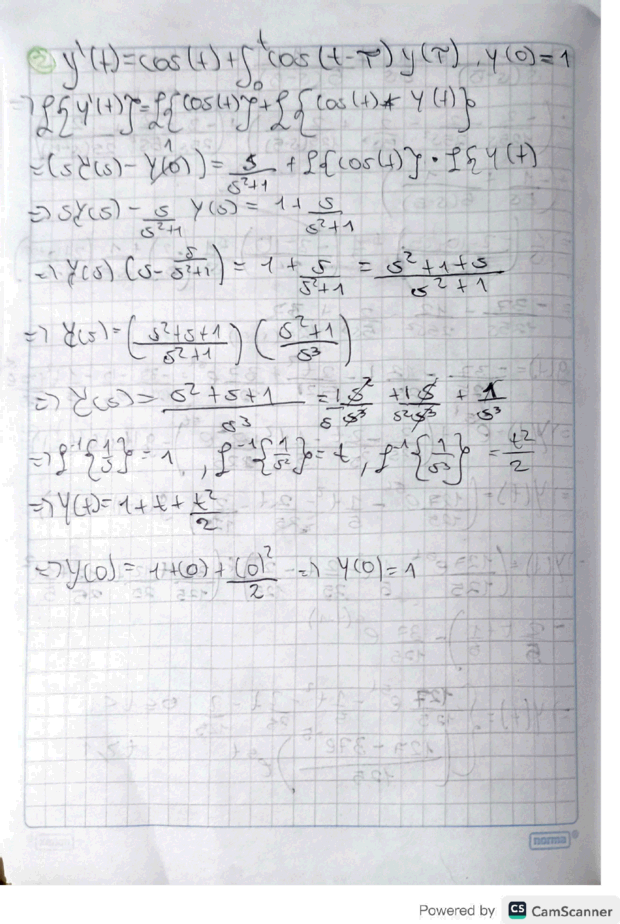 ② y'(t)=cos(t)+∫₀ᵗcos(t-τ) y(τ), y(0)=1
=> ℒ{y'(t)}=ℒ{cos(t)}+ℒ{cos(t)* y(t)}
=(sY(s)-y(0))= s/(s²+1) + ℒ{cos(t)} • ℒ{y(t)
1
=> sY(s) - s/(s²+1) Y(s) = 1 + s/(s²+1)
=> Y(s) (s - s/(s²+1)) = 1 + s/(s²+1) = (s²+1+s)/(s²+1)
=> Y(s) = ((s²+s+1)/(s²+1)) ((s²+1)/s³)
=> Y(s) = (s²+s+1)/s³ = 1s²/s s³ + 1s/s² s³ + 1/s³
=> ℒ⁻¹{1/s} = 1 , ℒ⁻¹{1/s²} = t , ℒ⁻¹{1/s³} = t²/2
=> y(t) = 1 + t + t²/2
=> y(0) = 1+(0)+(0)²/2 => y(0)=1
norma
Powered by CS CamScanner